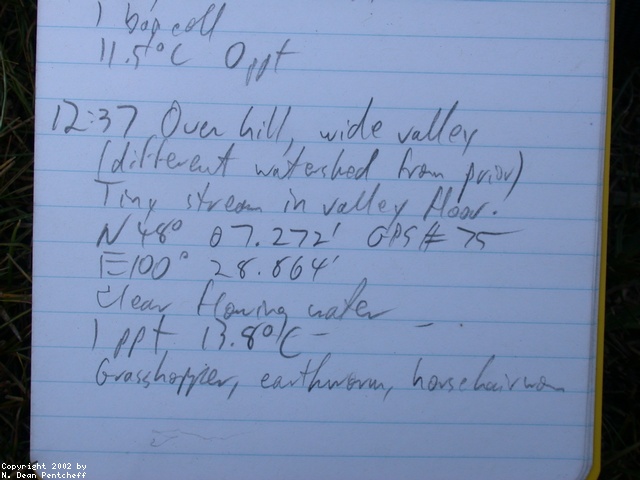 1 bag coll
11.5°C 0ppt
12:37 Over hill, wide valley
(different watershed from prior)
Tiny stream in valley floor.
N 48° 07.272' GPS# 75
E100° 28.864'
Clear flowing water
1 ppt 13.8°C
Grasshopper, earthworm, horsehairworm
Copyright 2002 by
N. Dean Pentcheff